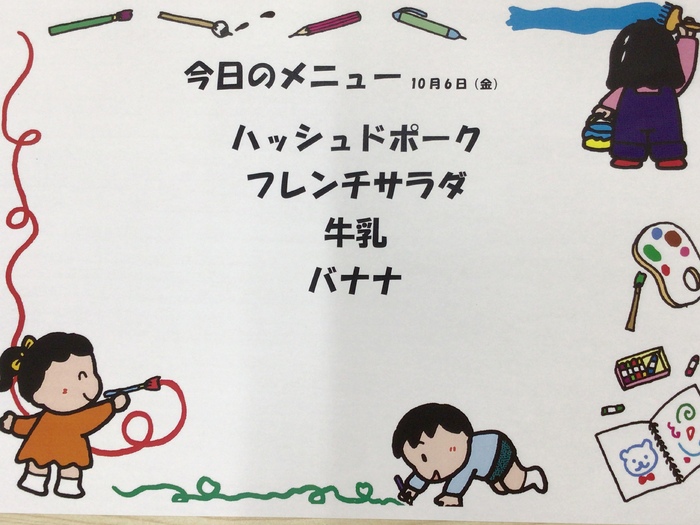 今日のメニュー 10月6日（金）
ハッシュドポーク
フレンチサラダ
牛乳
バナナ